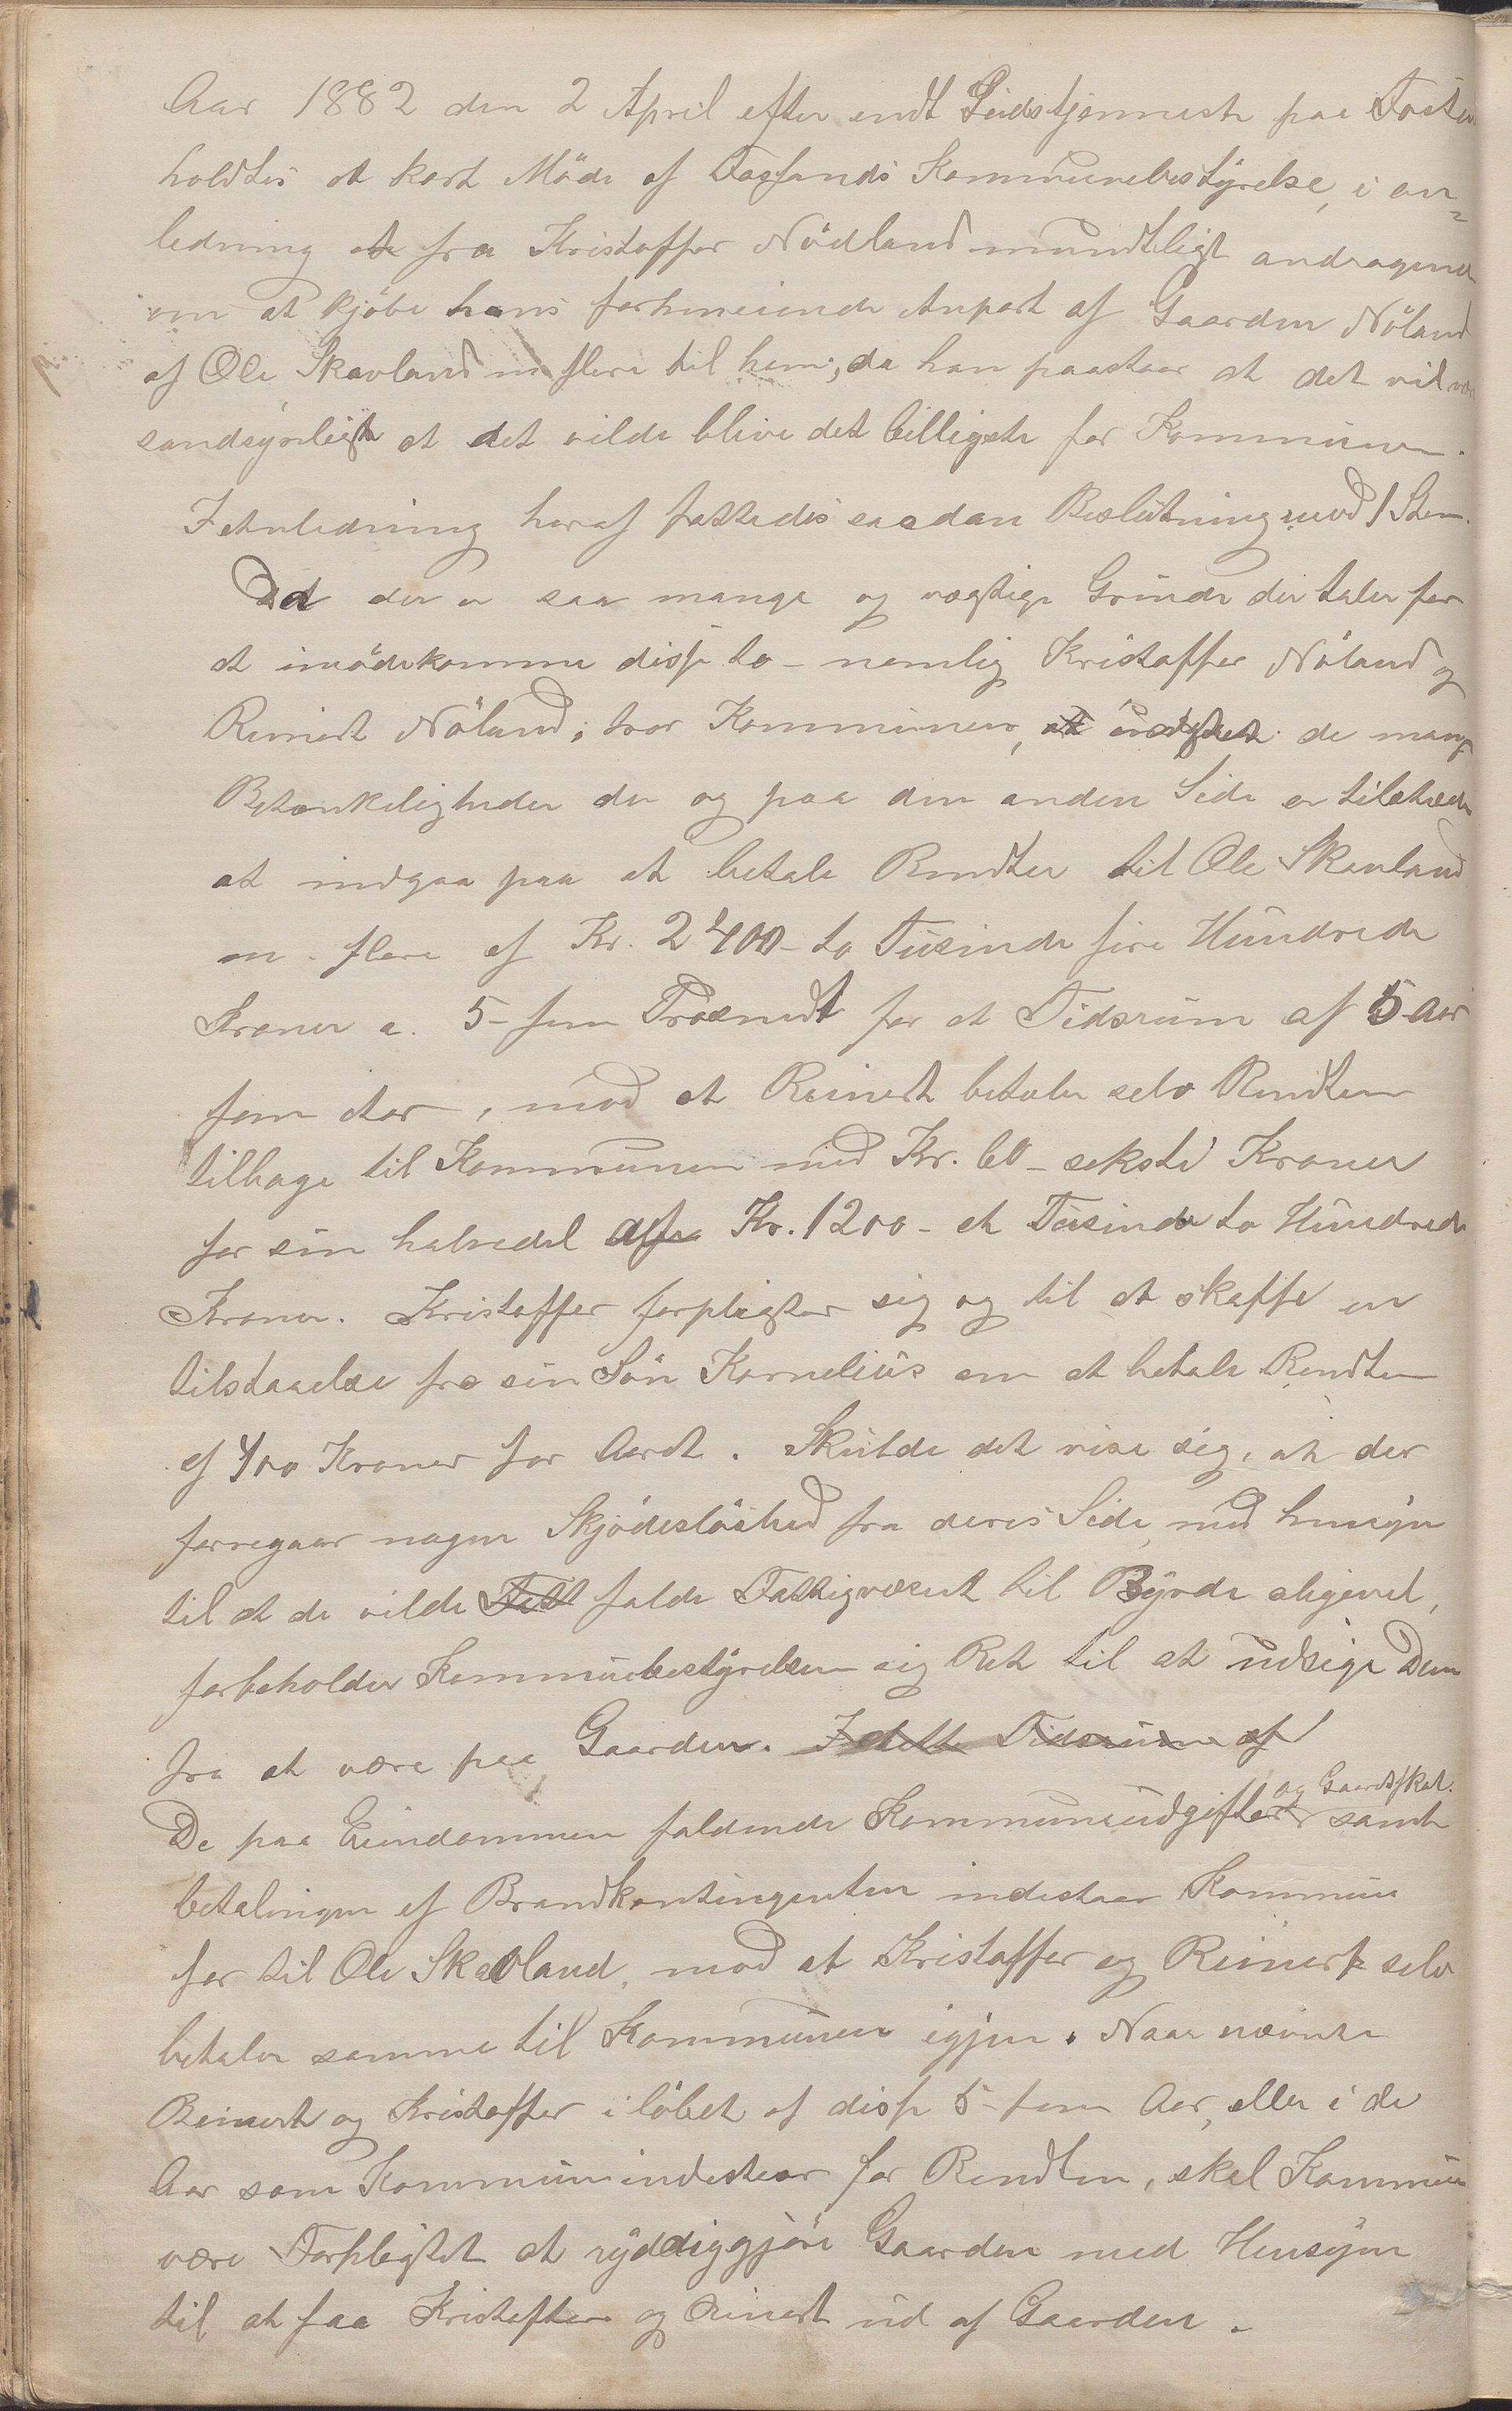 Aar 1882 den 2 April efter endt Gudstjenneste paa
holdtes et kort Möde af Fosfands Kommunebestÿrelse, i an=
ledning af fra Kristoffer Nödland mundtligt andragende
om at kjöbe hans forhenværende Anpart af Gaarden Nöland
af Ole Skavland m flere til ham; da han paastaar at det vil
sandsynligt at det vilde blive det billigste for Kommunen.
I Anledning heraf fattedes saadan Beslutning mod 1 Stem.
Da der er saa mange og vægtige Grunde der taler for
at imödekomme disse to - nemlig Kristoffer Nöland og
Reinert Nöland; tror Kommunen, uagtet de mange
Betænkeligheder der og paa den anden Side er tilstede
at indgaa paa at betale Rendter til Ole Skavland
m. flere af Kr. 2400 - to Tusinde fire Hundrede
Kroner a. 5 - fem Prosendt for et Tidsrum af 5 Aar
fem Aar, mod at Reinert betaler selv Rendten
tilbage til Kommunen med Kr. 60 - seksti Kroner
for sin halvedel af Kr. 1200 - et Tusinde to Hundrede
Kroner. Kristoffer forpligter sig og til at skaffe en
tilstaaelse fra sin Sön Kornelius om at betale Rendten
af 400 Kroner for Aaret. Skulde det vise sig, at der
forregaar nogen Skjödeslöshed fra deres Side, med hensyn
til at de vilde falde Fattigvæsnet til Byrde aligevel,
forbeholder Kommunebestyrelsen sig Ret til at udsige Dem
fra at være paa Gaarden. I dette Tidsrum af
og Gaardskat.
De paa Eiendommen faldende Kommuneudgifter samt
betalingen af Brandkontingenten indestaar Kommune
for til Ole Skavland, mod at Kristoffer og Reinert selv
betaler samme til Kommunen igjen. Naar nævnte
Reinert og Kristoffer i löbet af disse 5 - fem Aar, eller i de
Aar som Kommunen indestaar for Rendten, skal Kommunen
være Forpligtet at ryddiggjöre Gaarden med Hensyn
til at faa Kristoffer og Reinert ud af Gaarden.